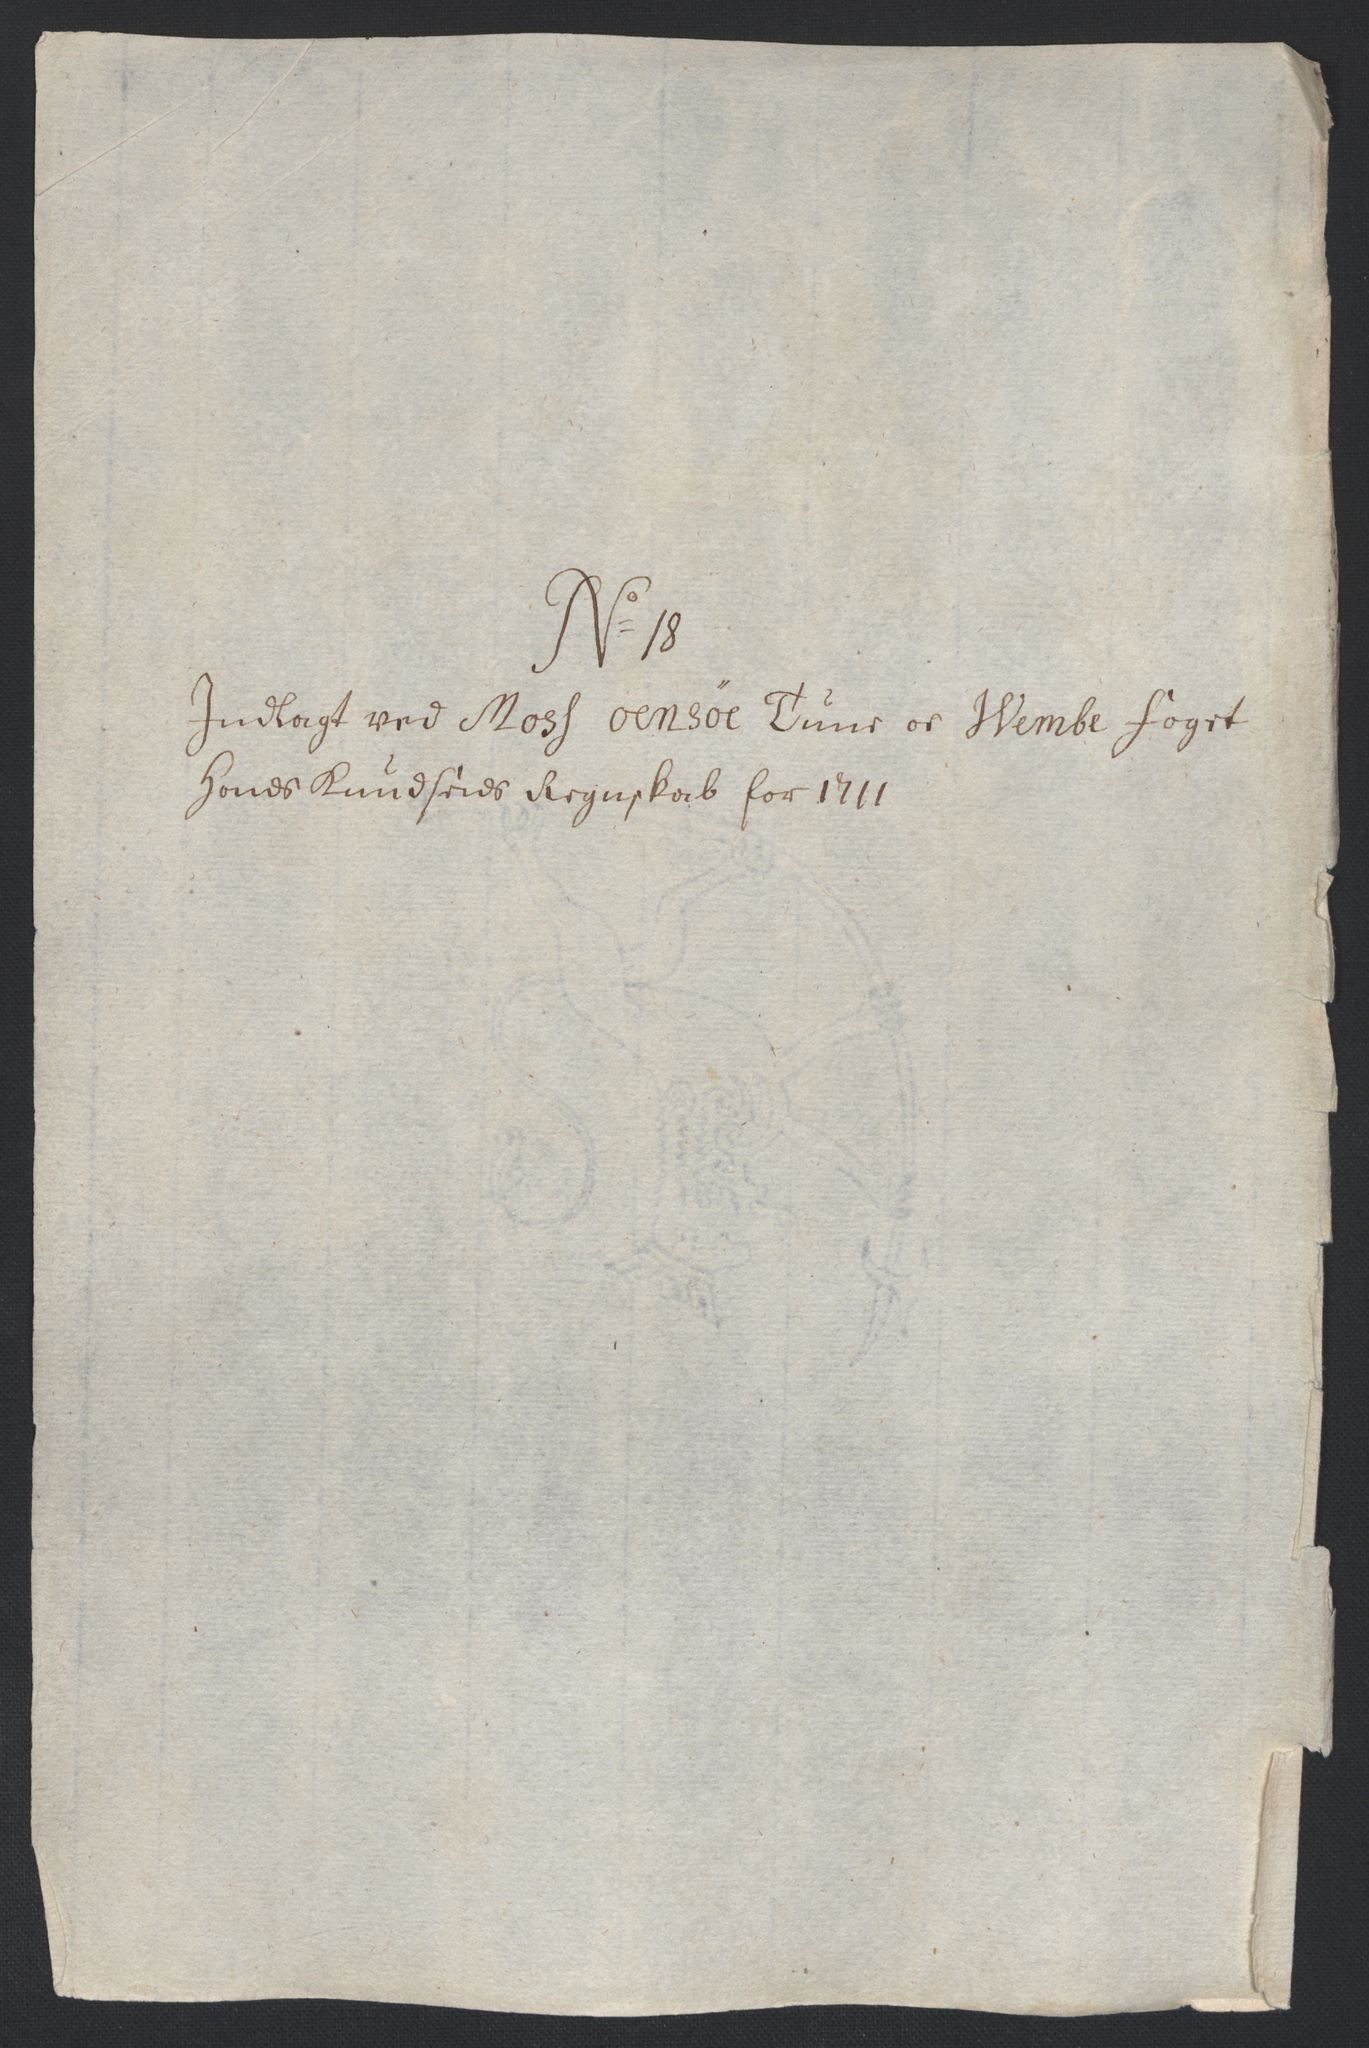 No 18
Indlagt ved Moss oensöe Tune oc Wembe foget
Hends Knudsens Regnskab for 1711